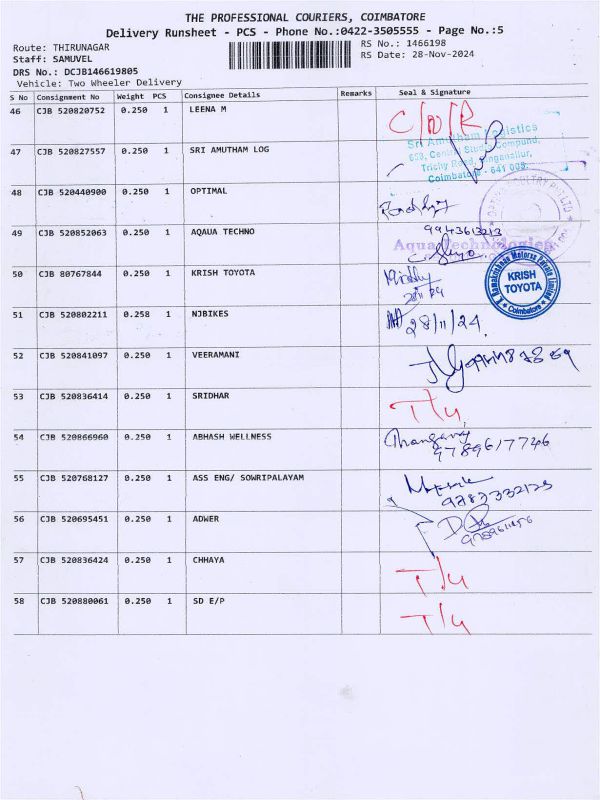 THE PROFESSIONAL COURIERS, COIMBATORE
Delivery Runsheet - PCS - Phone No.:0422-3505555 - Page No.:5
Route: THIRUNAGAR
RS No.: 1466198
Staff: SAMUVEL
RS Date: 28-Nov-2024
DRS No.: DCJB146619805
Vehicle: Two Wheeler Delivery
S No Consignment No Weight PCS Consignee Details Remarks Seal & Signature
46 CJB 520820752 0.250 1 LEENA M
Sri Amutham Logistics
Trichy Road, Singanallur,
Coimbatore - 641 005.
47 CJB 520827557 0.250 1 SRI AMUTHAM LOG
48 CJB 520440900 0.250 1 OPTIMAL
49 CJB 520852063 0.250 1 AQAUA TECHNO
9943613213
Aqua Technologies
50 CJB 80767844 0.250 1 KRISH TOYOTA
KRISH
TOYOTA
Coimbatore
51 CJB 520802211 0.258 1 NJBIKES 28/11/24
52 CJB 520841097 0.250 1 VEERAMANI
53 CJB 520836414 0.250 1 SRIDHAR
54 CJB 520866960 0.250 1 ABHASH WELLNESS
9789617746
55 CJB 520768127 0.250 1 ASS ENG/ SOWRIPALAYAM
56 CJB 520695451 0.250 1 ADWER
57 CJB 520836424 0.250 1 CHHAYA
58 CJB 520880061 0.250 1 SD E/P